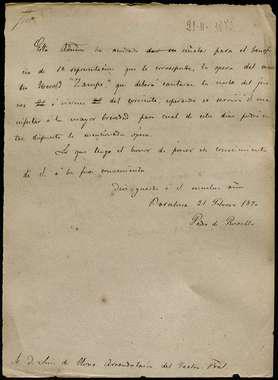 21-II-1870
Esta ha acordado señalar para el benefi
cio de 1ª representación que le corresponde, la opera del maes
tro Herold "Zampa" que deberá cantarse la noche del jue
ves ó viernes del corriente, esperando se servirá
la mayor brevedad para cual de estos dias podrá es
tar dispuesta la mencionada opera.
Lo que tengo el honor de poner en conocimiento
de V. á los fines convenientes.
Dios guarde á V. muchos años
Barcelona 21 Febrero 1870
Pedro de
A D. Luis de Arrendatario del Teatro Pral